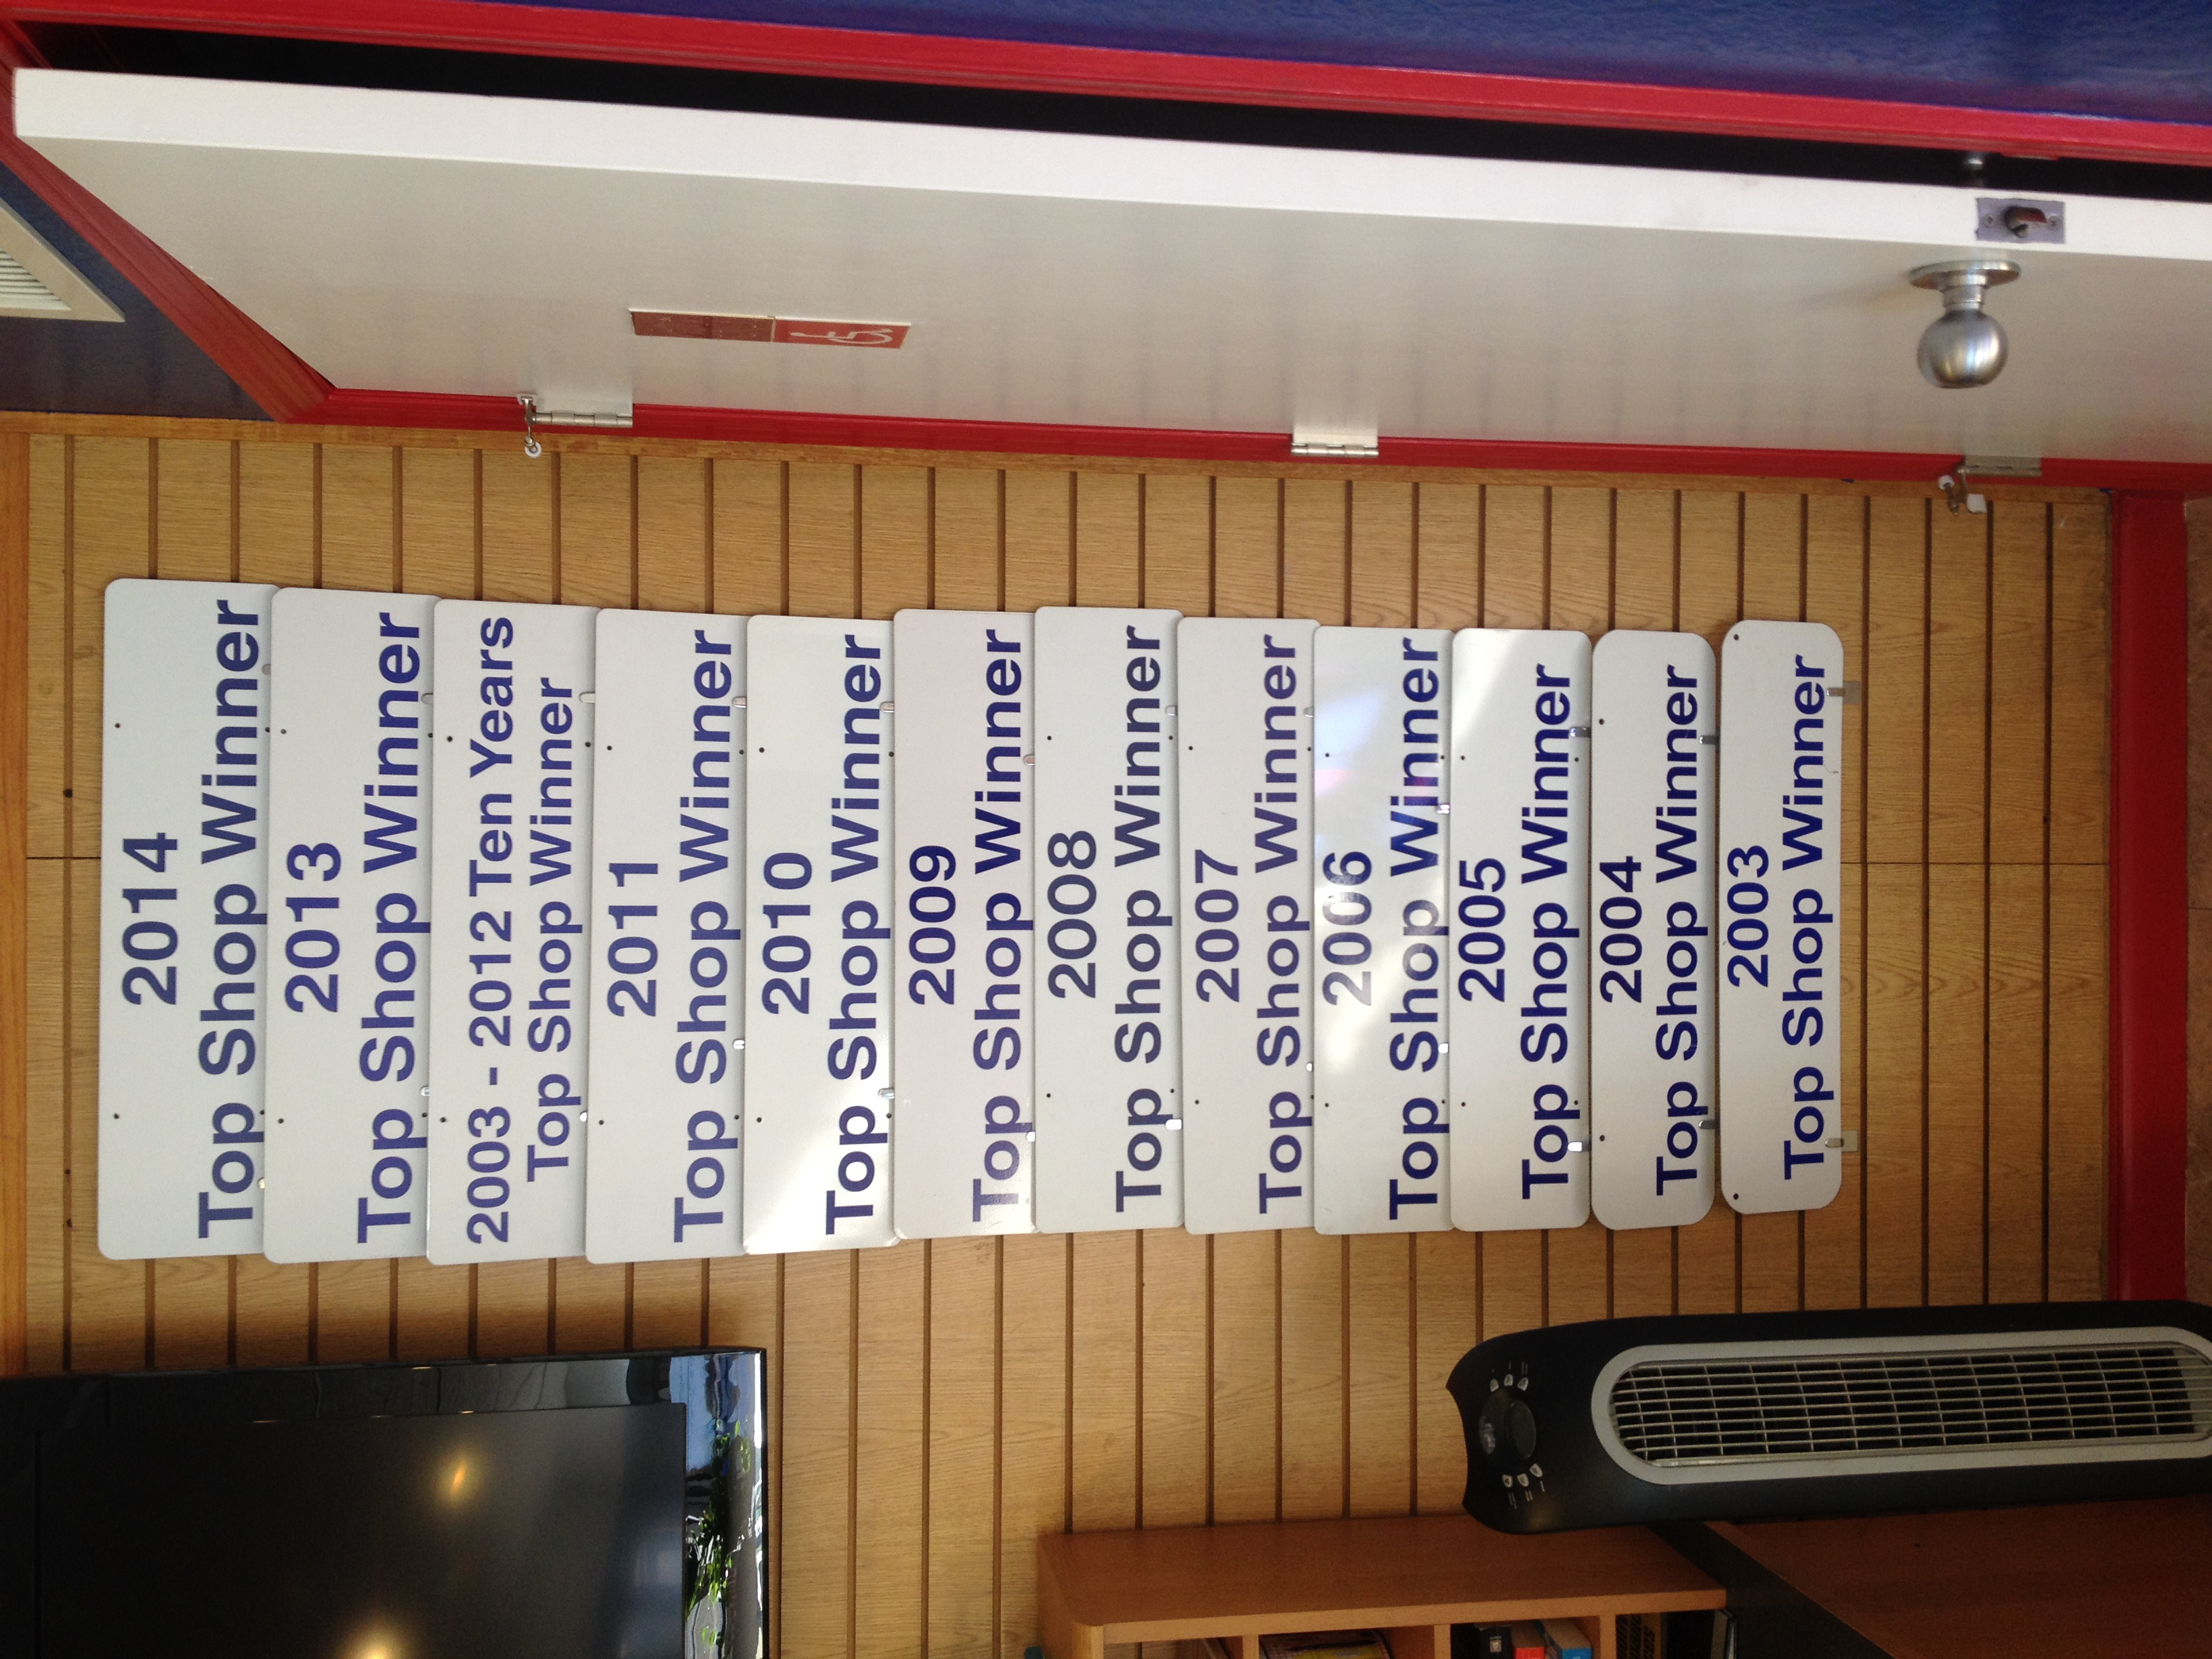 2014
Top Shop Winner
2013
Top Shop Winner
2003 - 2012 Ten Years
Top Shop Winner
2011
Top Shop Winner
2010
Top Shop Winner
2009
Top Shop Winner
2008
Top Shop Winner
2007
Top Shop Winner
2006
Top Shop Winner
2005
Top Shop Winner
2004
Top Shop Winner
2003
Top Shop Winner